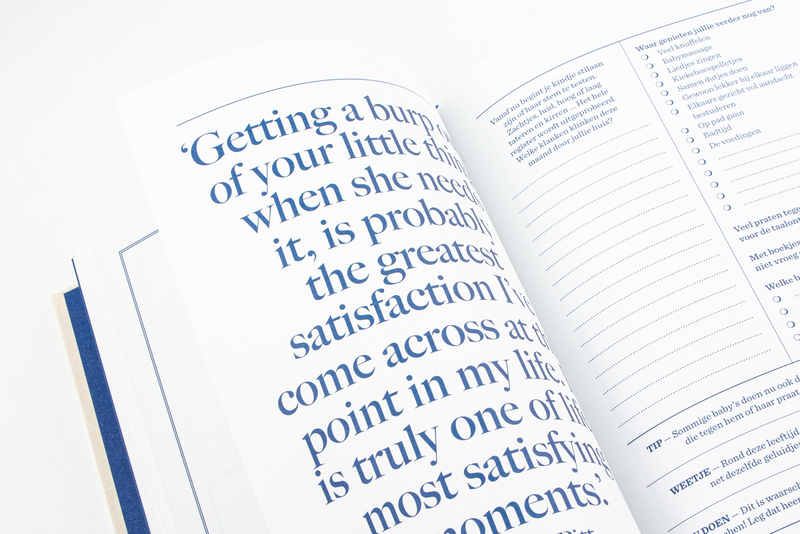 ‘Getting a burp
of your little
when she
it, is probably
the greatest
satisfaction
come across at
point in my life.
is truly one of
most satisfying
moments’.
Vanaf nu begint je kindje stilaan
zijn of haar stem te testen.
Zachtjes, luid, hoog of laag
tateren en kirren — Het hele
register wordt uitgeprobeerd.
Welke klanken klinken deze
maand door jullie huis?
Waar genieten jullie verder nog van?
Veel knuffelen
Babymassage
Liedjes zingen
Kiekeboespelletjes
Samen dutjes doen
Gewoon lekker bij elkaar liggen
Elkaars gezicht vol aandacht
bestuderen
Op pad gaan
Badtijd
De voedingen
Veel praten
voor de
Met
niet vroeg
Welke
TIP — Sommige baby’s doen nu ook
die tegen hem of haar praat
WEETJE — Rond deze leeftijd
net dezelfde
DOEN — Dit is
Leg dat